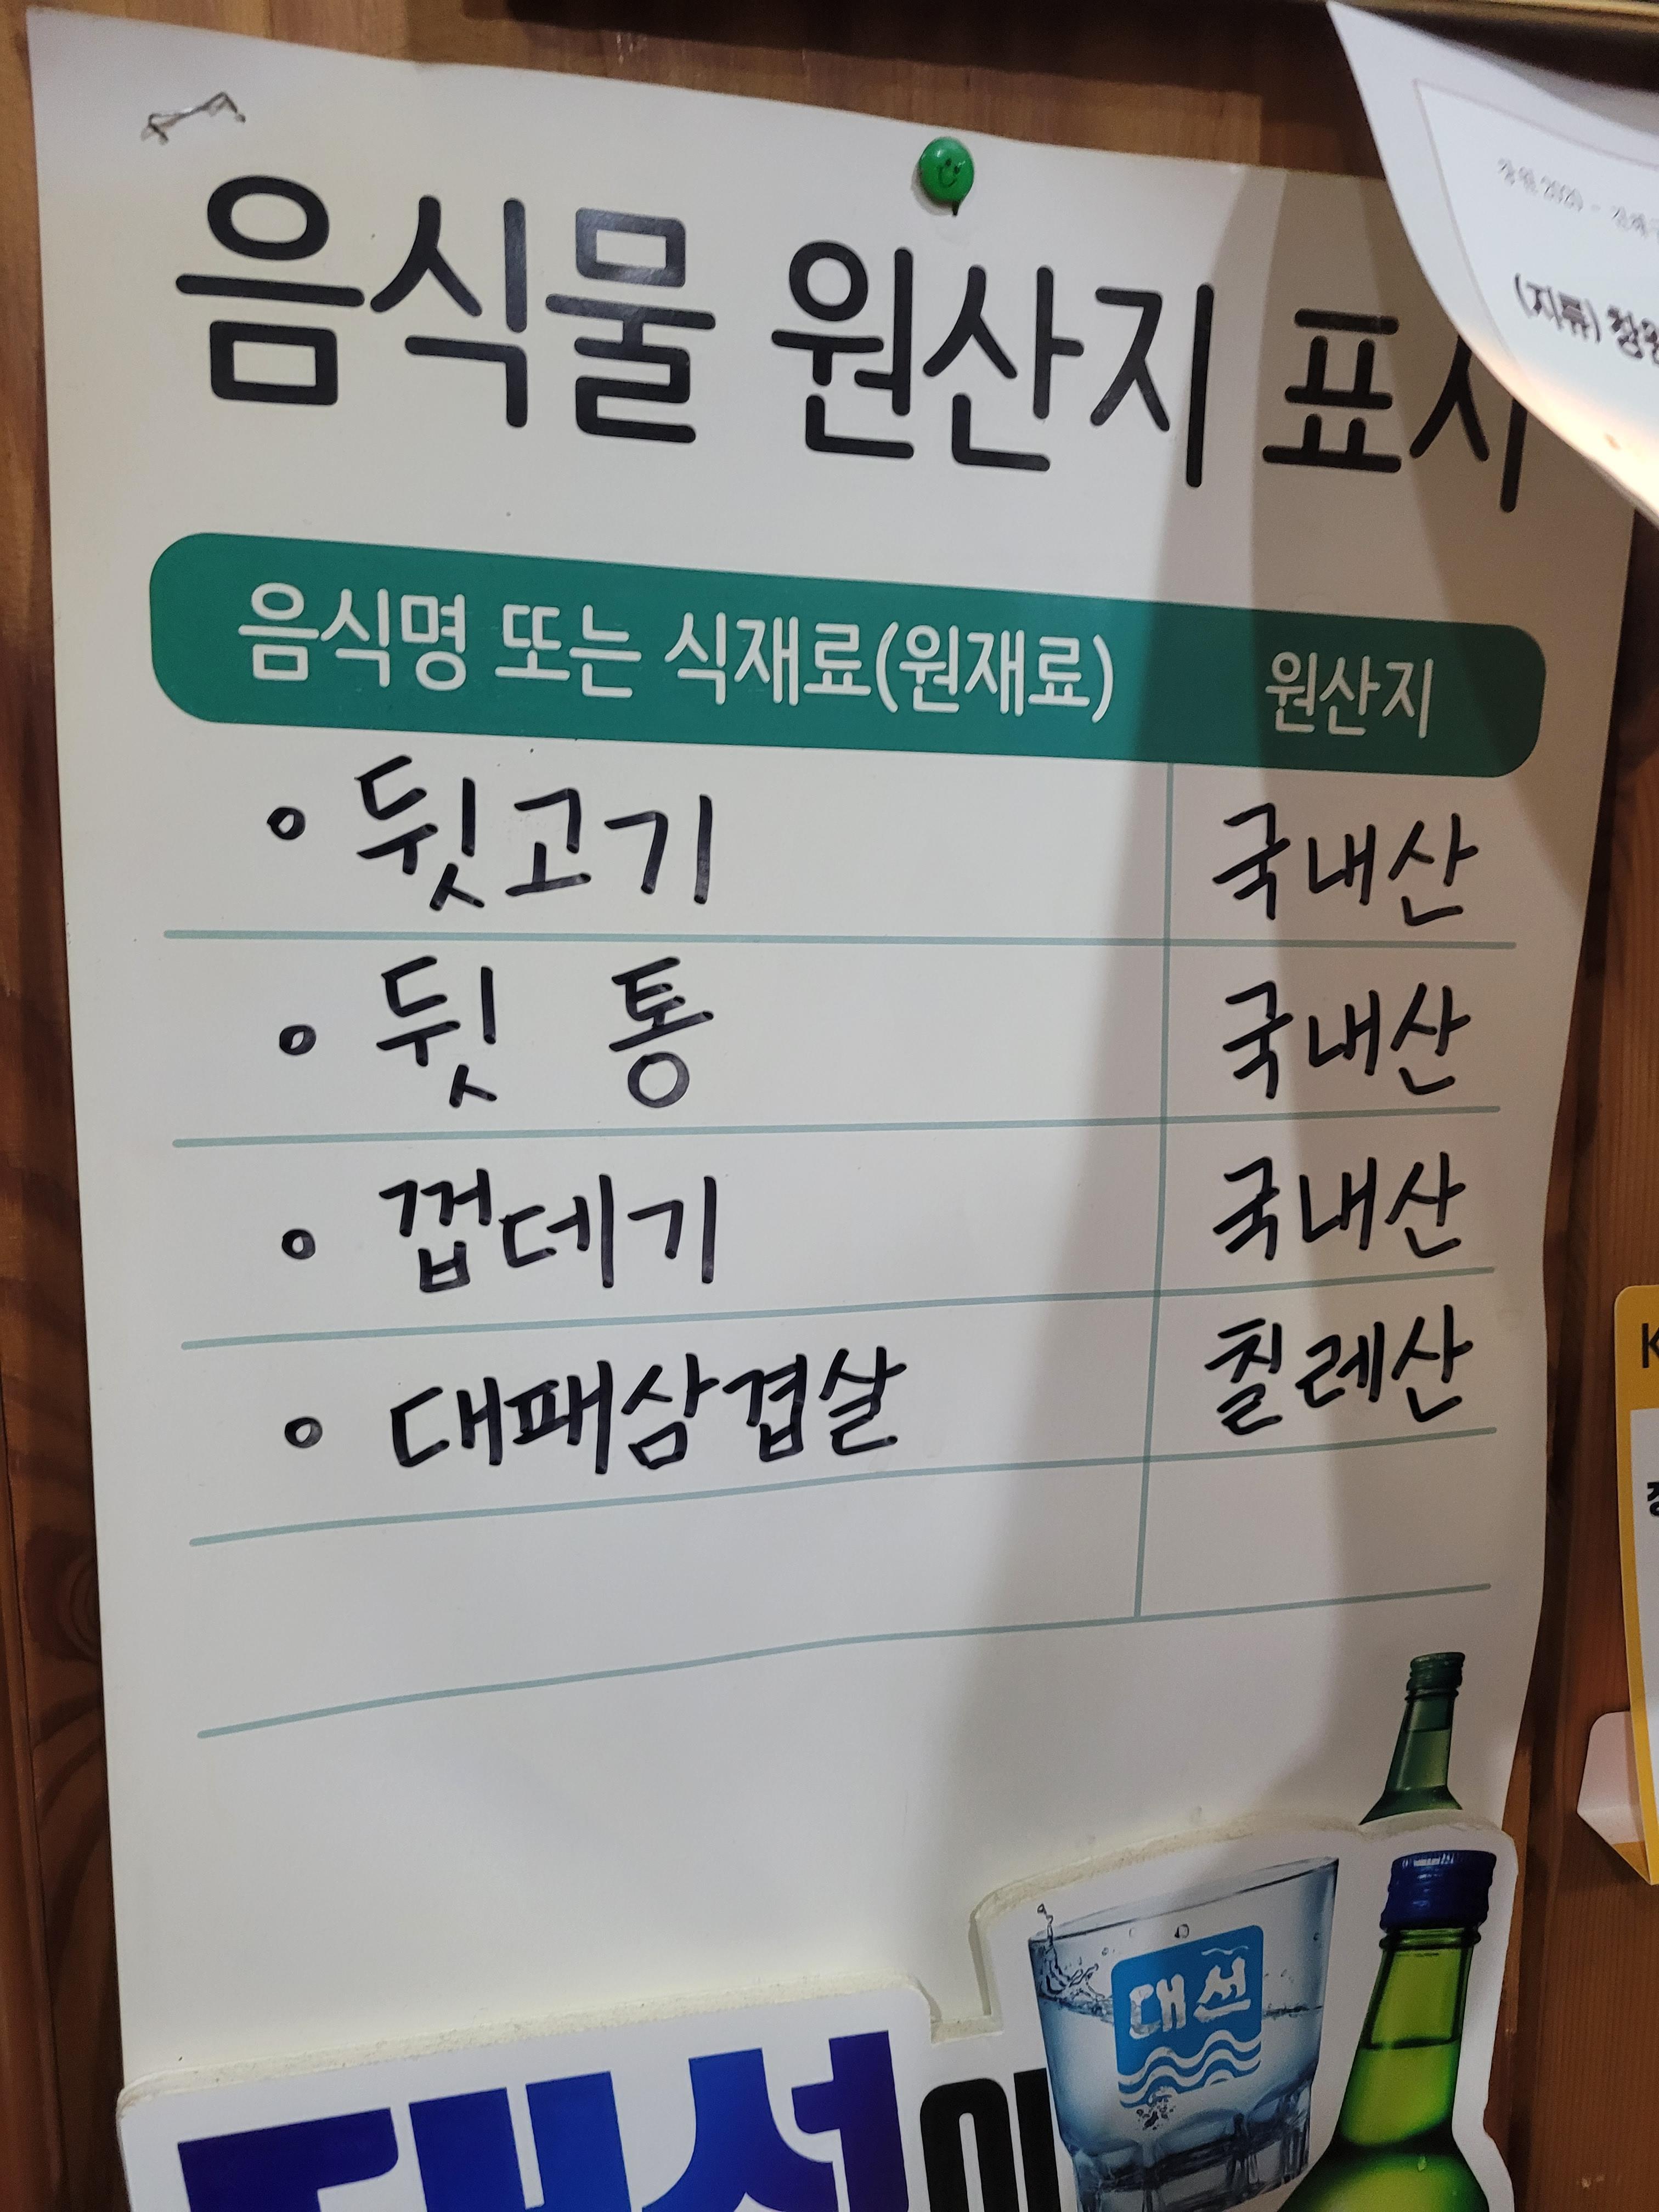 음식물 원산지 표시
음식명 또는 식재료(원재료) 원산지
• 뒷고기 국내산
• 뒷 통 국내산
• 껍데기 국내산
• 대패삼겹살 칠레산
대선
대선이
(지류) 창원
K